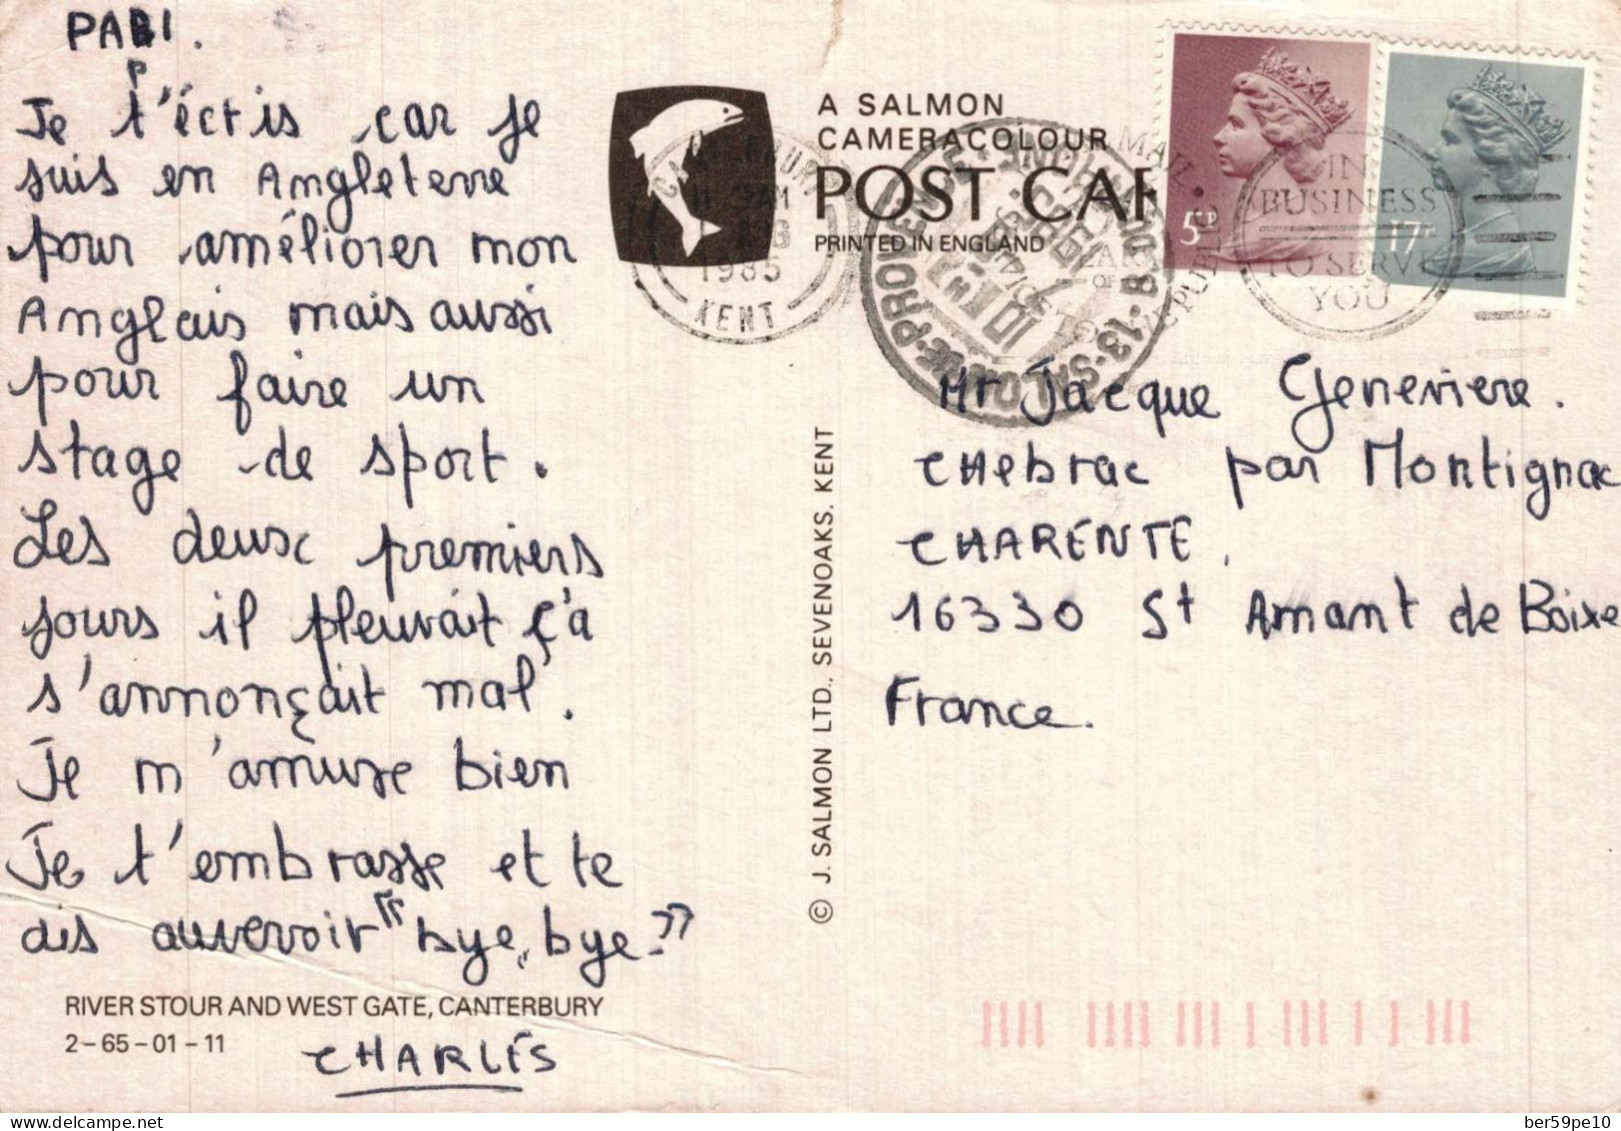 PABI.
Je t'écris car je
suis en Angleterre
pour améliorer mon
Anglais mais aussi
pour faire un
stage de sport.
Les deux premiers
jours il pleuvait ç'à
s'annonçait mal.
Je m'amuse bien
Je t'embrasse et te
dis auvervoir "bye, bye."
RIVER STOUR AND WEST GATE, CANTERBURY
2-65-01-11
CHARLES
A SALMON
CAMERACOLOUR
POST CAR
PRINTED IN ENGLAND
© J. SALMON LTD., SEVENOAKS, KENT
1985
KENT
SALON DE PROVENCE
5½P
17P
IN
BUSINESS
TO SERVE
YOU
Mr Jacque Geneviere.
CHebrac par Montignac
CHARENTE,
16330 St Amant de Boixe
France.
ber59pe10